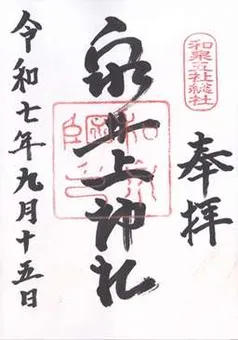 和泉五社総社
奉拝
泉井上神社
令和七年九月十五日